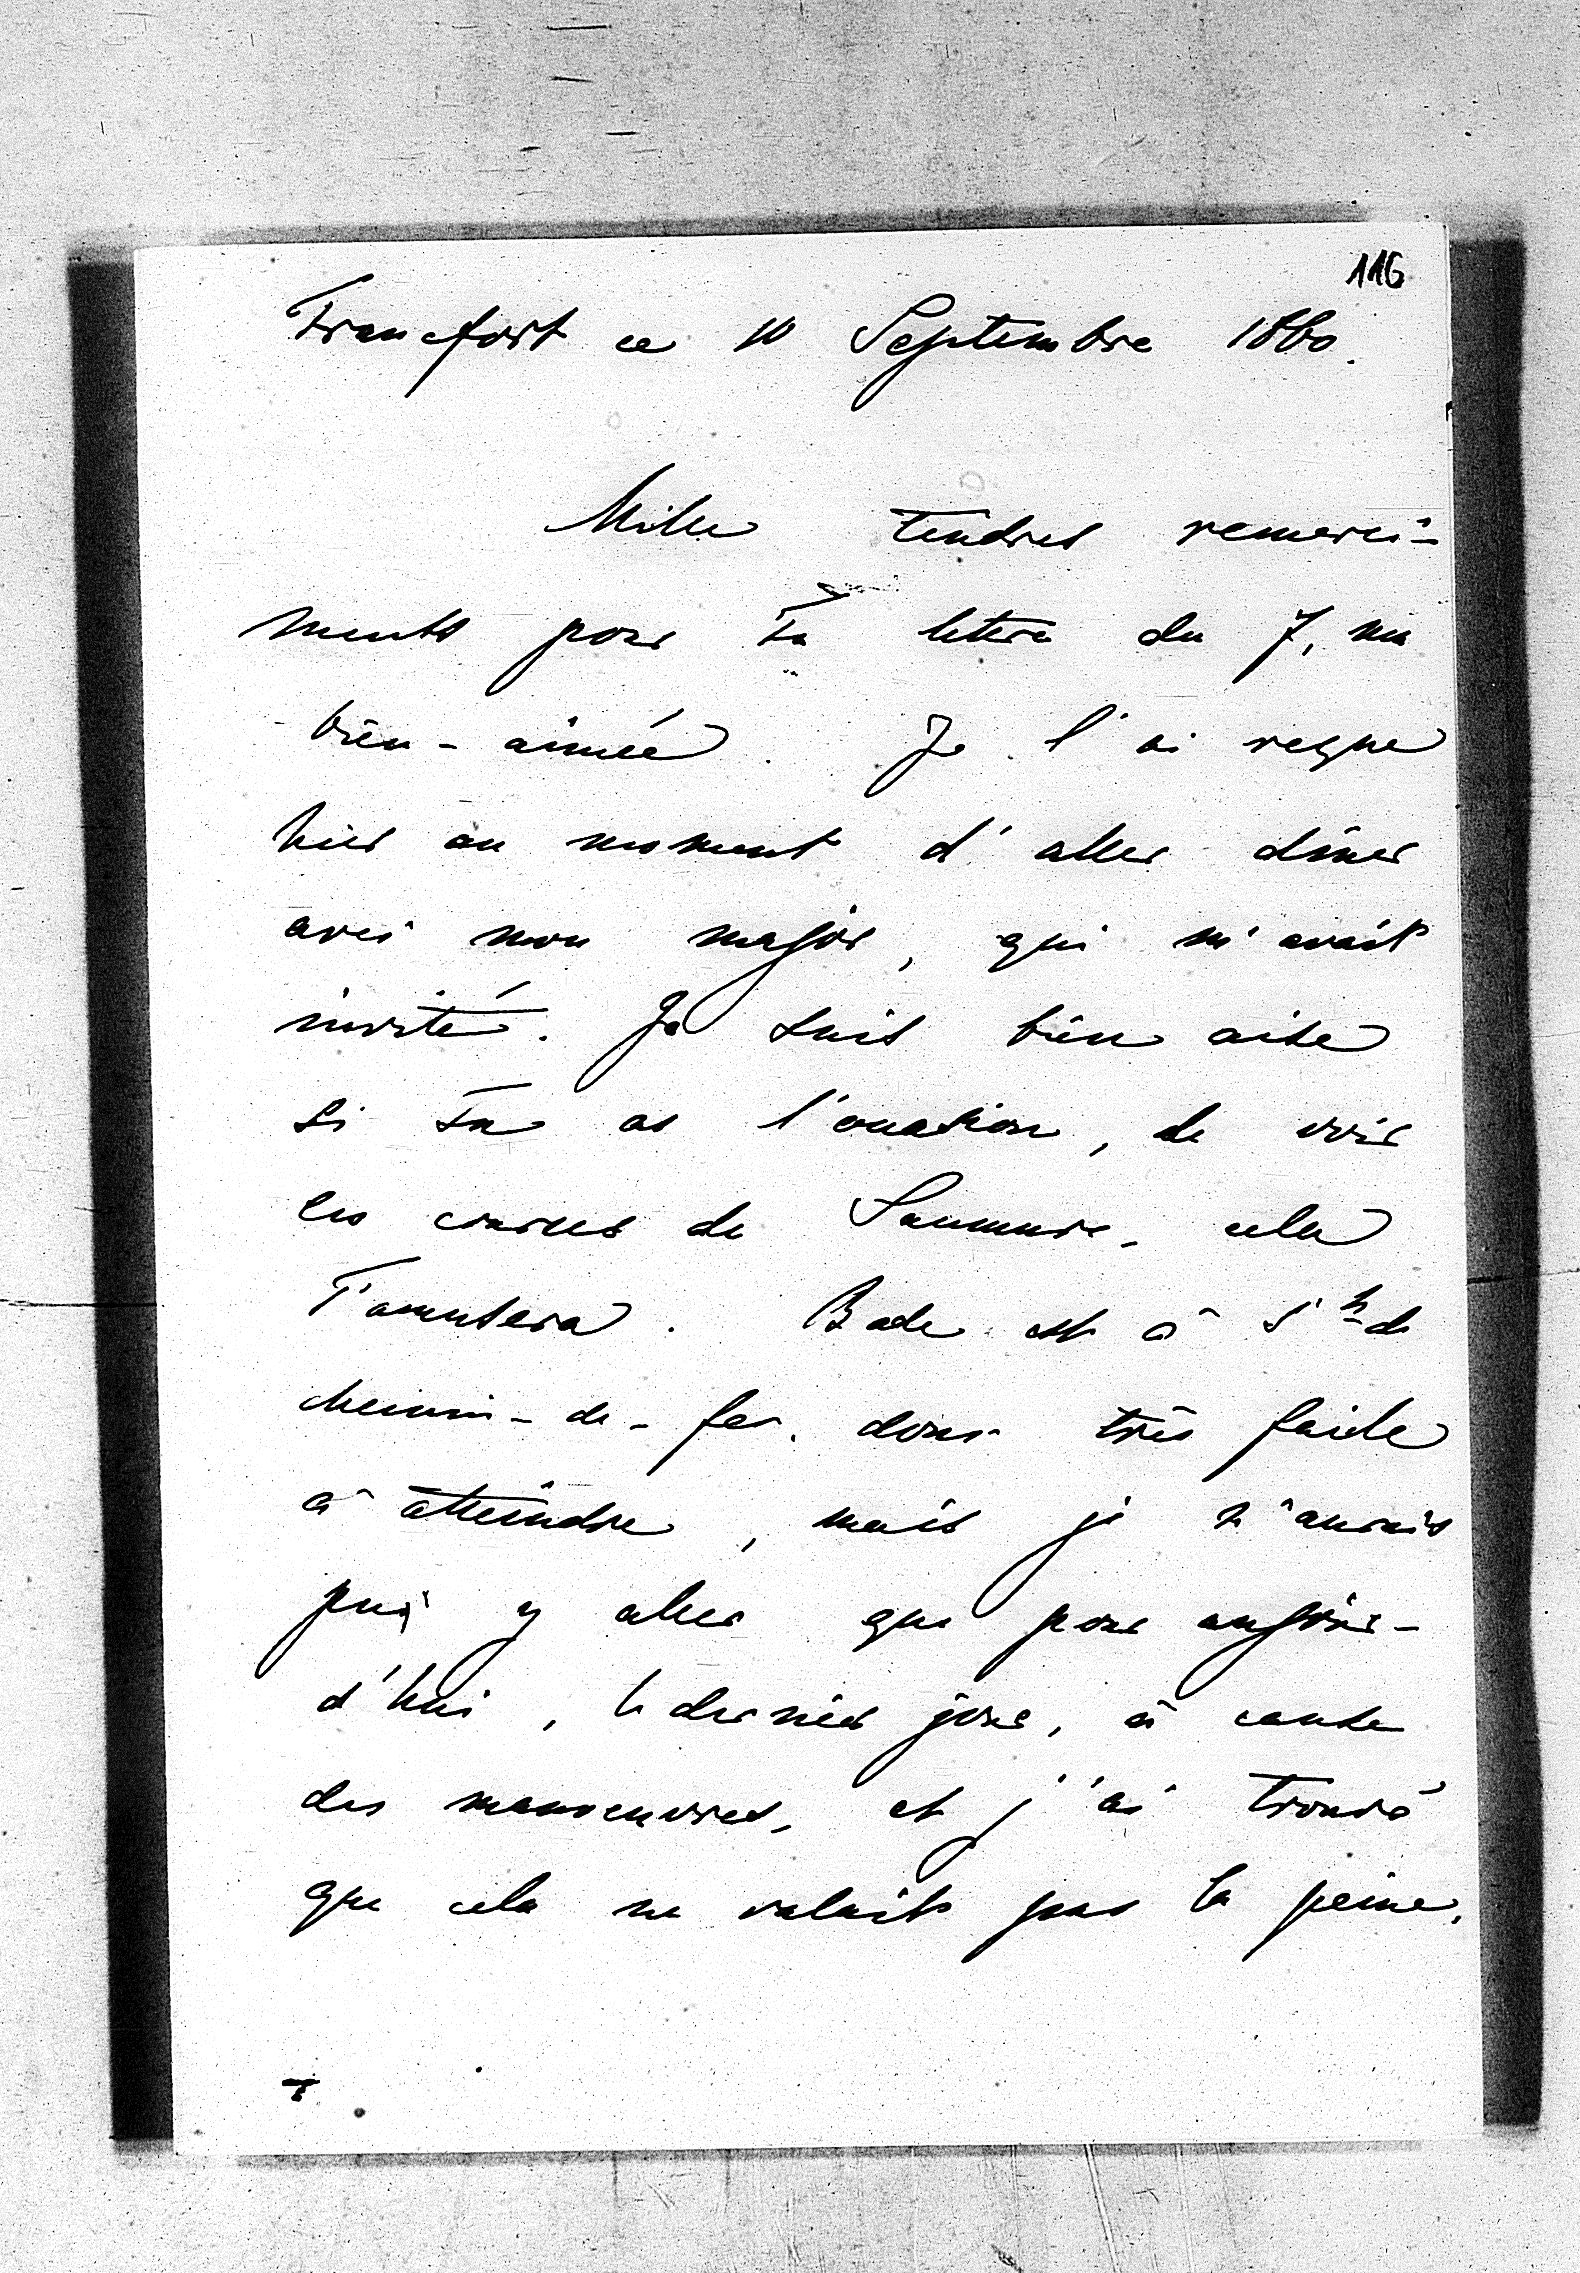 116
Francfort ce 10 Septembre 1860.
Mille tendres remerci-
ments pour Ta lettre du 7, ma
bien-aimée. Je l'ai reçue
hier au moment d'aller dîner
avec mon major, qui m'avait
invité. Je suis bien aise
si Tu as l'occasion, de voir
les courses de Saumure, cela
T'amusera. Bade est à 5 h de
chemin-de-fer, donc très facile
à atteindre, mais je n'aurais
pu y aller que pour aujour-
d'hui, le dernier jour, à cause
des manoeuvres, et j'ai trouvé
que cela ne valait pas la peine.